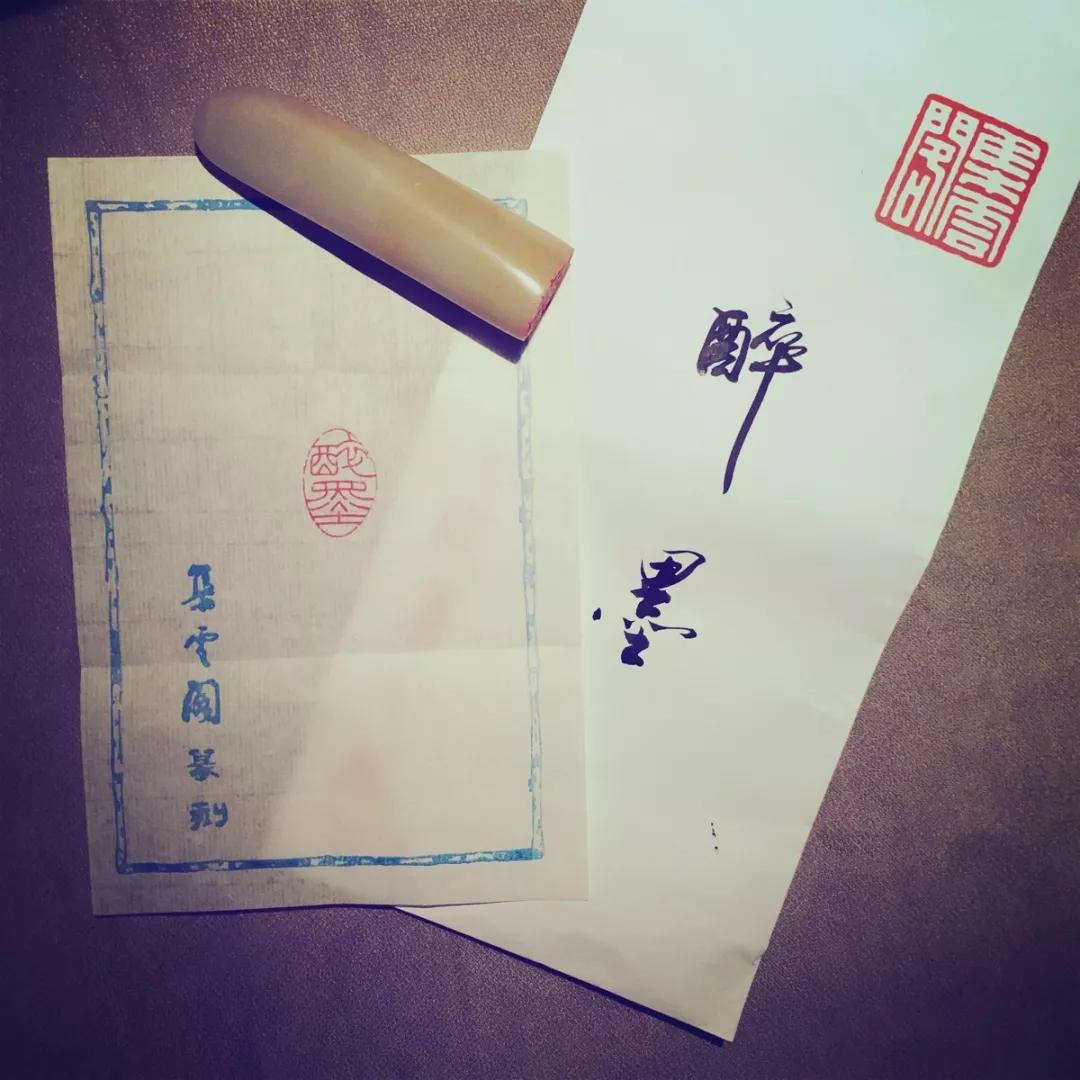 集雲閣印
醉墨
醉墨
集雲閣篆刻